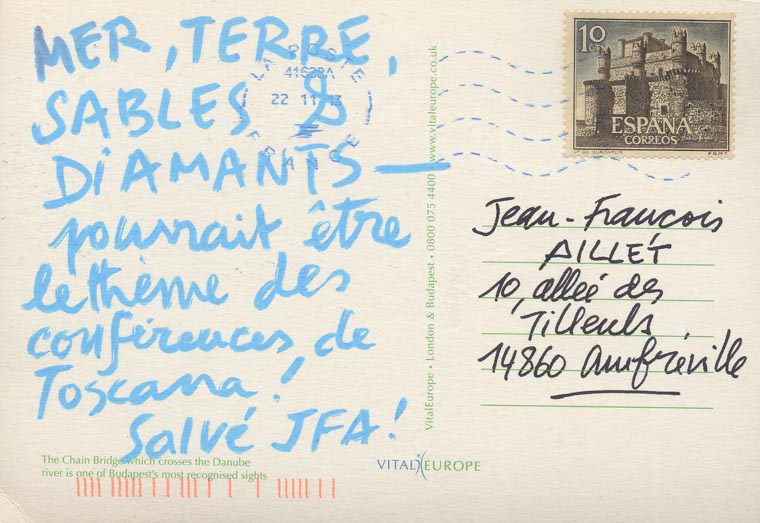 MER, TERRE,
SABLES &
DIAMANTS —
pourrait être
le thème des
conférences de
Toscana!
Salvé JFA!
The Chain Bridge which crosses the Danube
river is one of Budapest's most recognised sights
VitalEurope • London & Budapest • 0800 075 4400 • www.vitaleurope.co.uk
VITAL EUROPE
LA POSTE
41628A
22 11 13
FRANCE
10 CTS
ESPAÑA
CORREOS
F.N.M.T.
Jean-François
AILLET
10, allée des
Tilleuls
14860 Amfréville